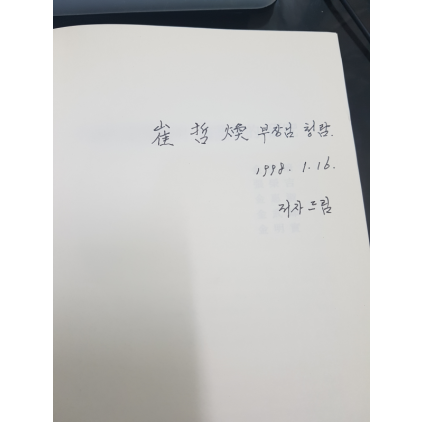 崔 哲 煥 부장님 청람.
1998. 1. 16.
저자 드림